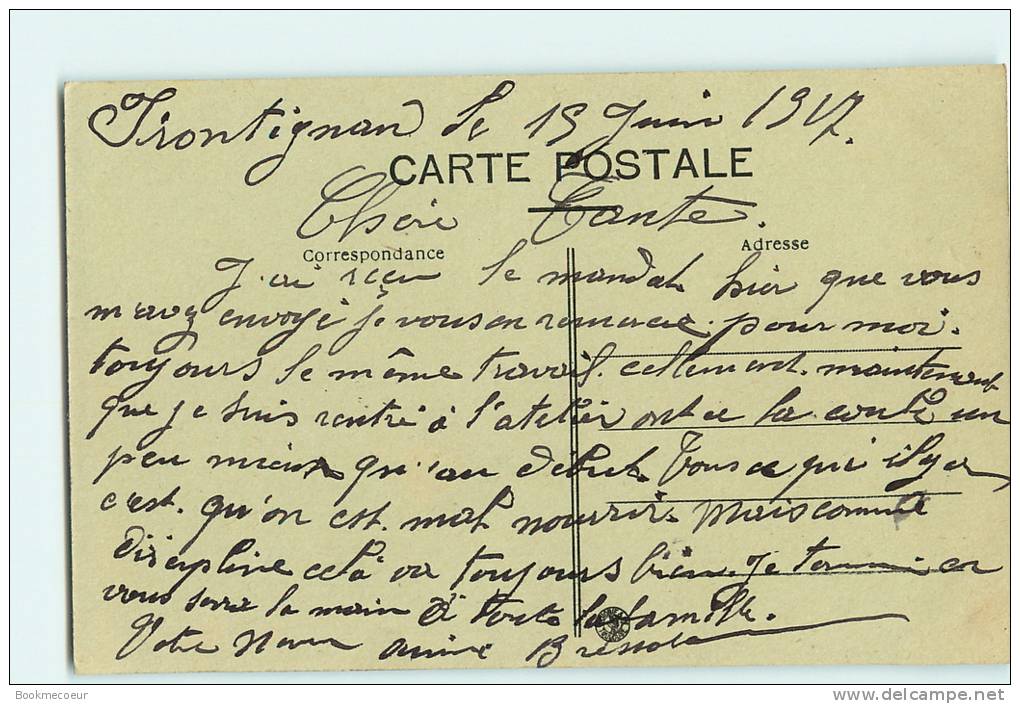 Frontignan le 19 Juin 1917.
CARTE POSTALE
Chère Tante.
Correspondance
Adresse
J'ai reçu le mandat hier que vous
m'avez envoyé je vous en remercie. pour moi.
toujours le même travail. cellement. maintenant
que je suis rentré à l'atelier ont ce la coule un
peu mieux qu'au debut. Tous ce qui il y a
c'est. qu'on est. mal nourrir. Mais comme
discipline celà va toujours bien. Je termine en
vous serre la main à toute la famille.
Votre Neveu aimé
Bookmecoeur
www.delcampe.net